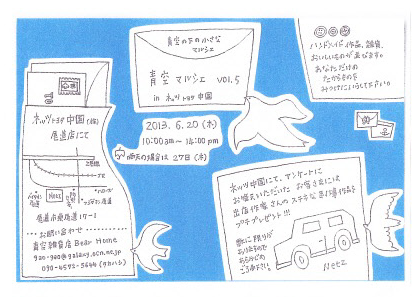 青空の下の小さな
マルシェ
青空 マルシェ vol.5
in ネッツトヨタ中国
2013. 6. 20 (木)
10:00am ~ 14:00pm
雨天の場合は 27日(木)
ハンドメイド作品、雑貨、
おいしいものが並びます。
あなただけの
たからものを
みつけにいらして下さい。
ネッツトヨタ中国(株)
尾道店にて
尾道市東尾道17-1
お問い合わせ
青空雑貨店 Bear Home
090-4592-5644
ネッツ中国にて、アンケートに
お答えいただいた お客さまには
出店作家さんの ステキな手作り作品を
プチプレゼント!!!
数に限りが
ありますので
あらかじめ
ご了承下さい。
Netz